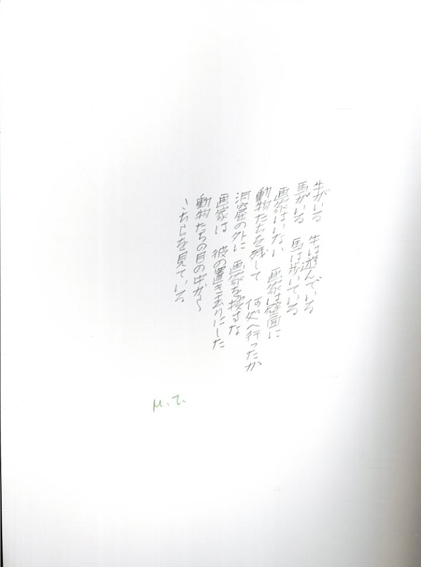 牛がいる 牛は遊んでいる
馬がいる 馬は歩いている
画家はいない 画家は壁面に
動物たちを残して 何処へ行ったか
洞窟の外に 画家を探すな
画家は 彼の置き去りにした
動物たちの目の中から
いちぶを見ている
M.T.